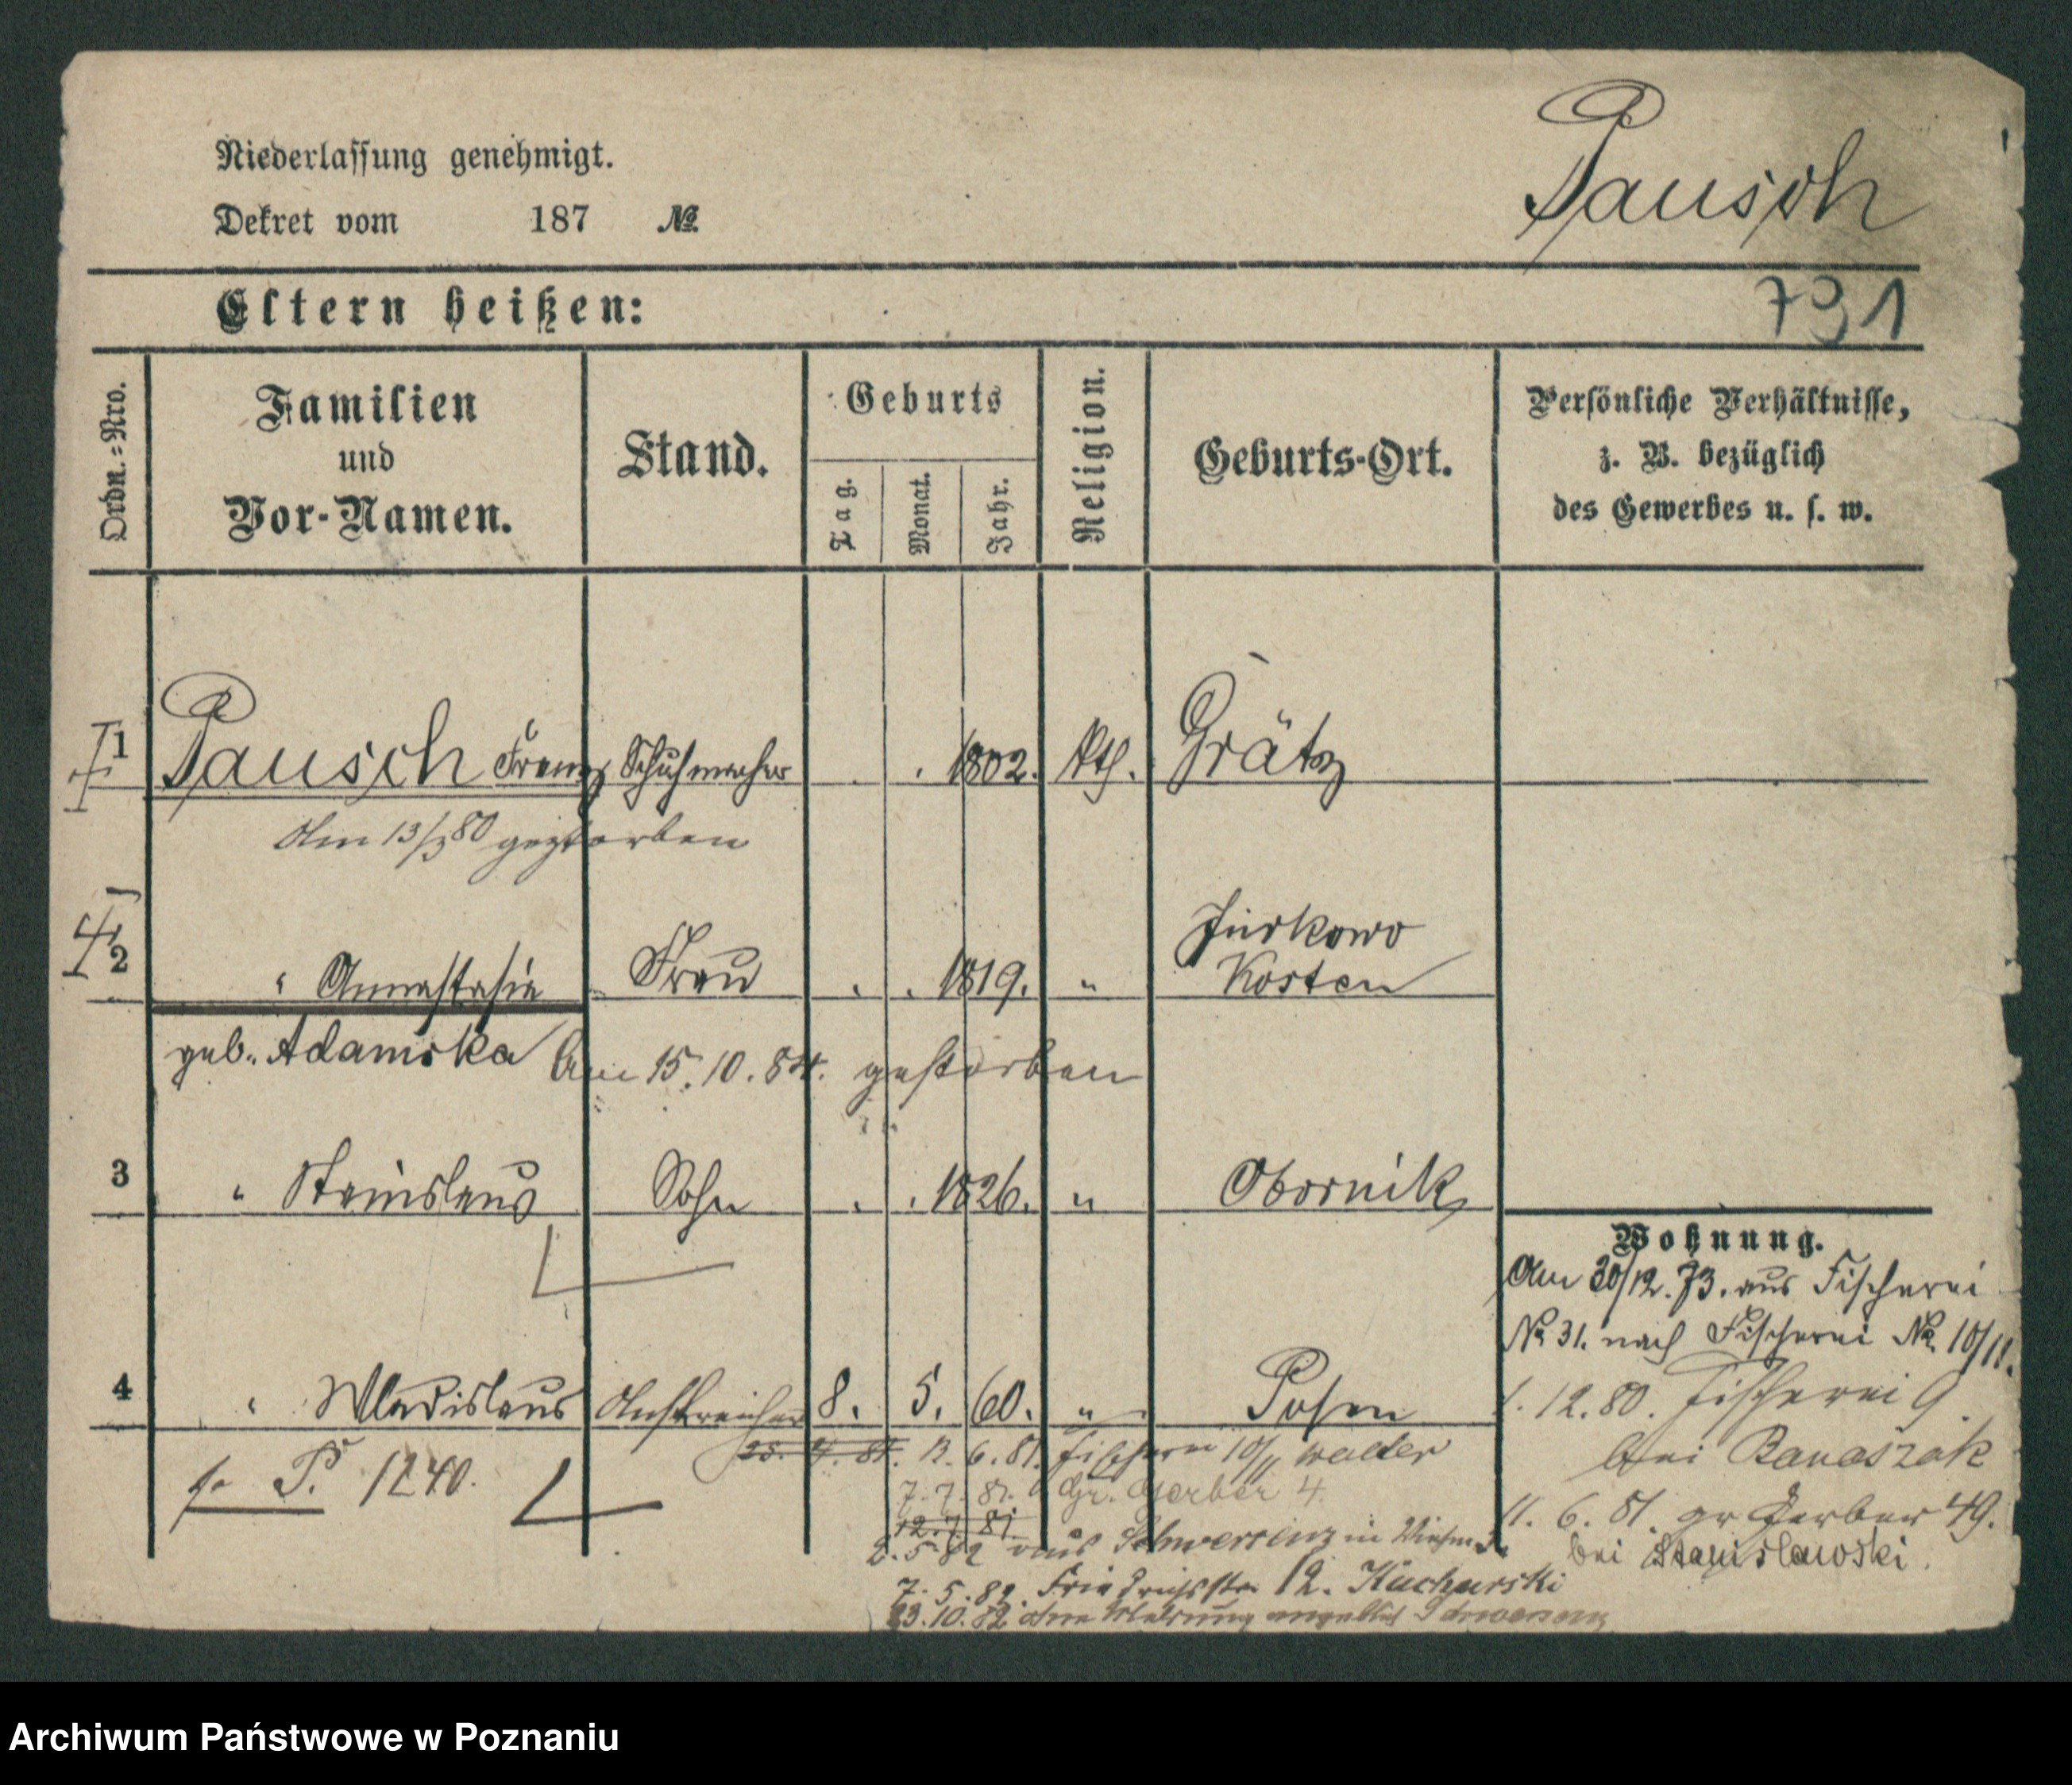 Niederlassung genehmigt.
Dekret vom 187 No.
Pausch
Eltern heißen:
791
Ordn.=Nro.
Familien
und
Vor-Namen.
Stand.
Geburts
Tag.
Monat.
Jahr.
Religion.
Geburts-Ort.
Persönliche Verhältnisse,
z. B. bezüglich
des Gewerbes u. s. w.
1 Pausch Franz Schuhmacher . . 1802. Kth. Grätz
Am 13/3 80 gestorben
Jurkowo
2 " Annastasia Frau . . 1819. " Kosten
geb. Adamska Am 15.10.84. gestorben
3 " Stanislaus Sohn . . 1826. " Obornik
Wohnung.
Am 30/12. 73. aus Fischerei
No 31. nach Fischerei No. 10/11.
4 " Wladislaus Anstreicher 8. 5. 60. " Posen
1. 12. 80. Fischerei 9
bei Banaszak
11. 6. 81. gr Gerber 49.
bei Stanislawski.
P. 1240.
12. 6. 81. Fischerei 10/11 walter
7. 7. 81. Gr. Gerber 4.
12. 7. 81.
2. 5. 82 aus Schwersenz in
7. 5. 82. Friedrichstr 12. Kucharski
23. 10. 82 ohne Meldung angeblich Schwersenz
Archiwum Państwowe w Poznaniu